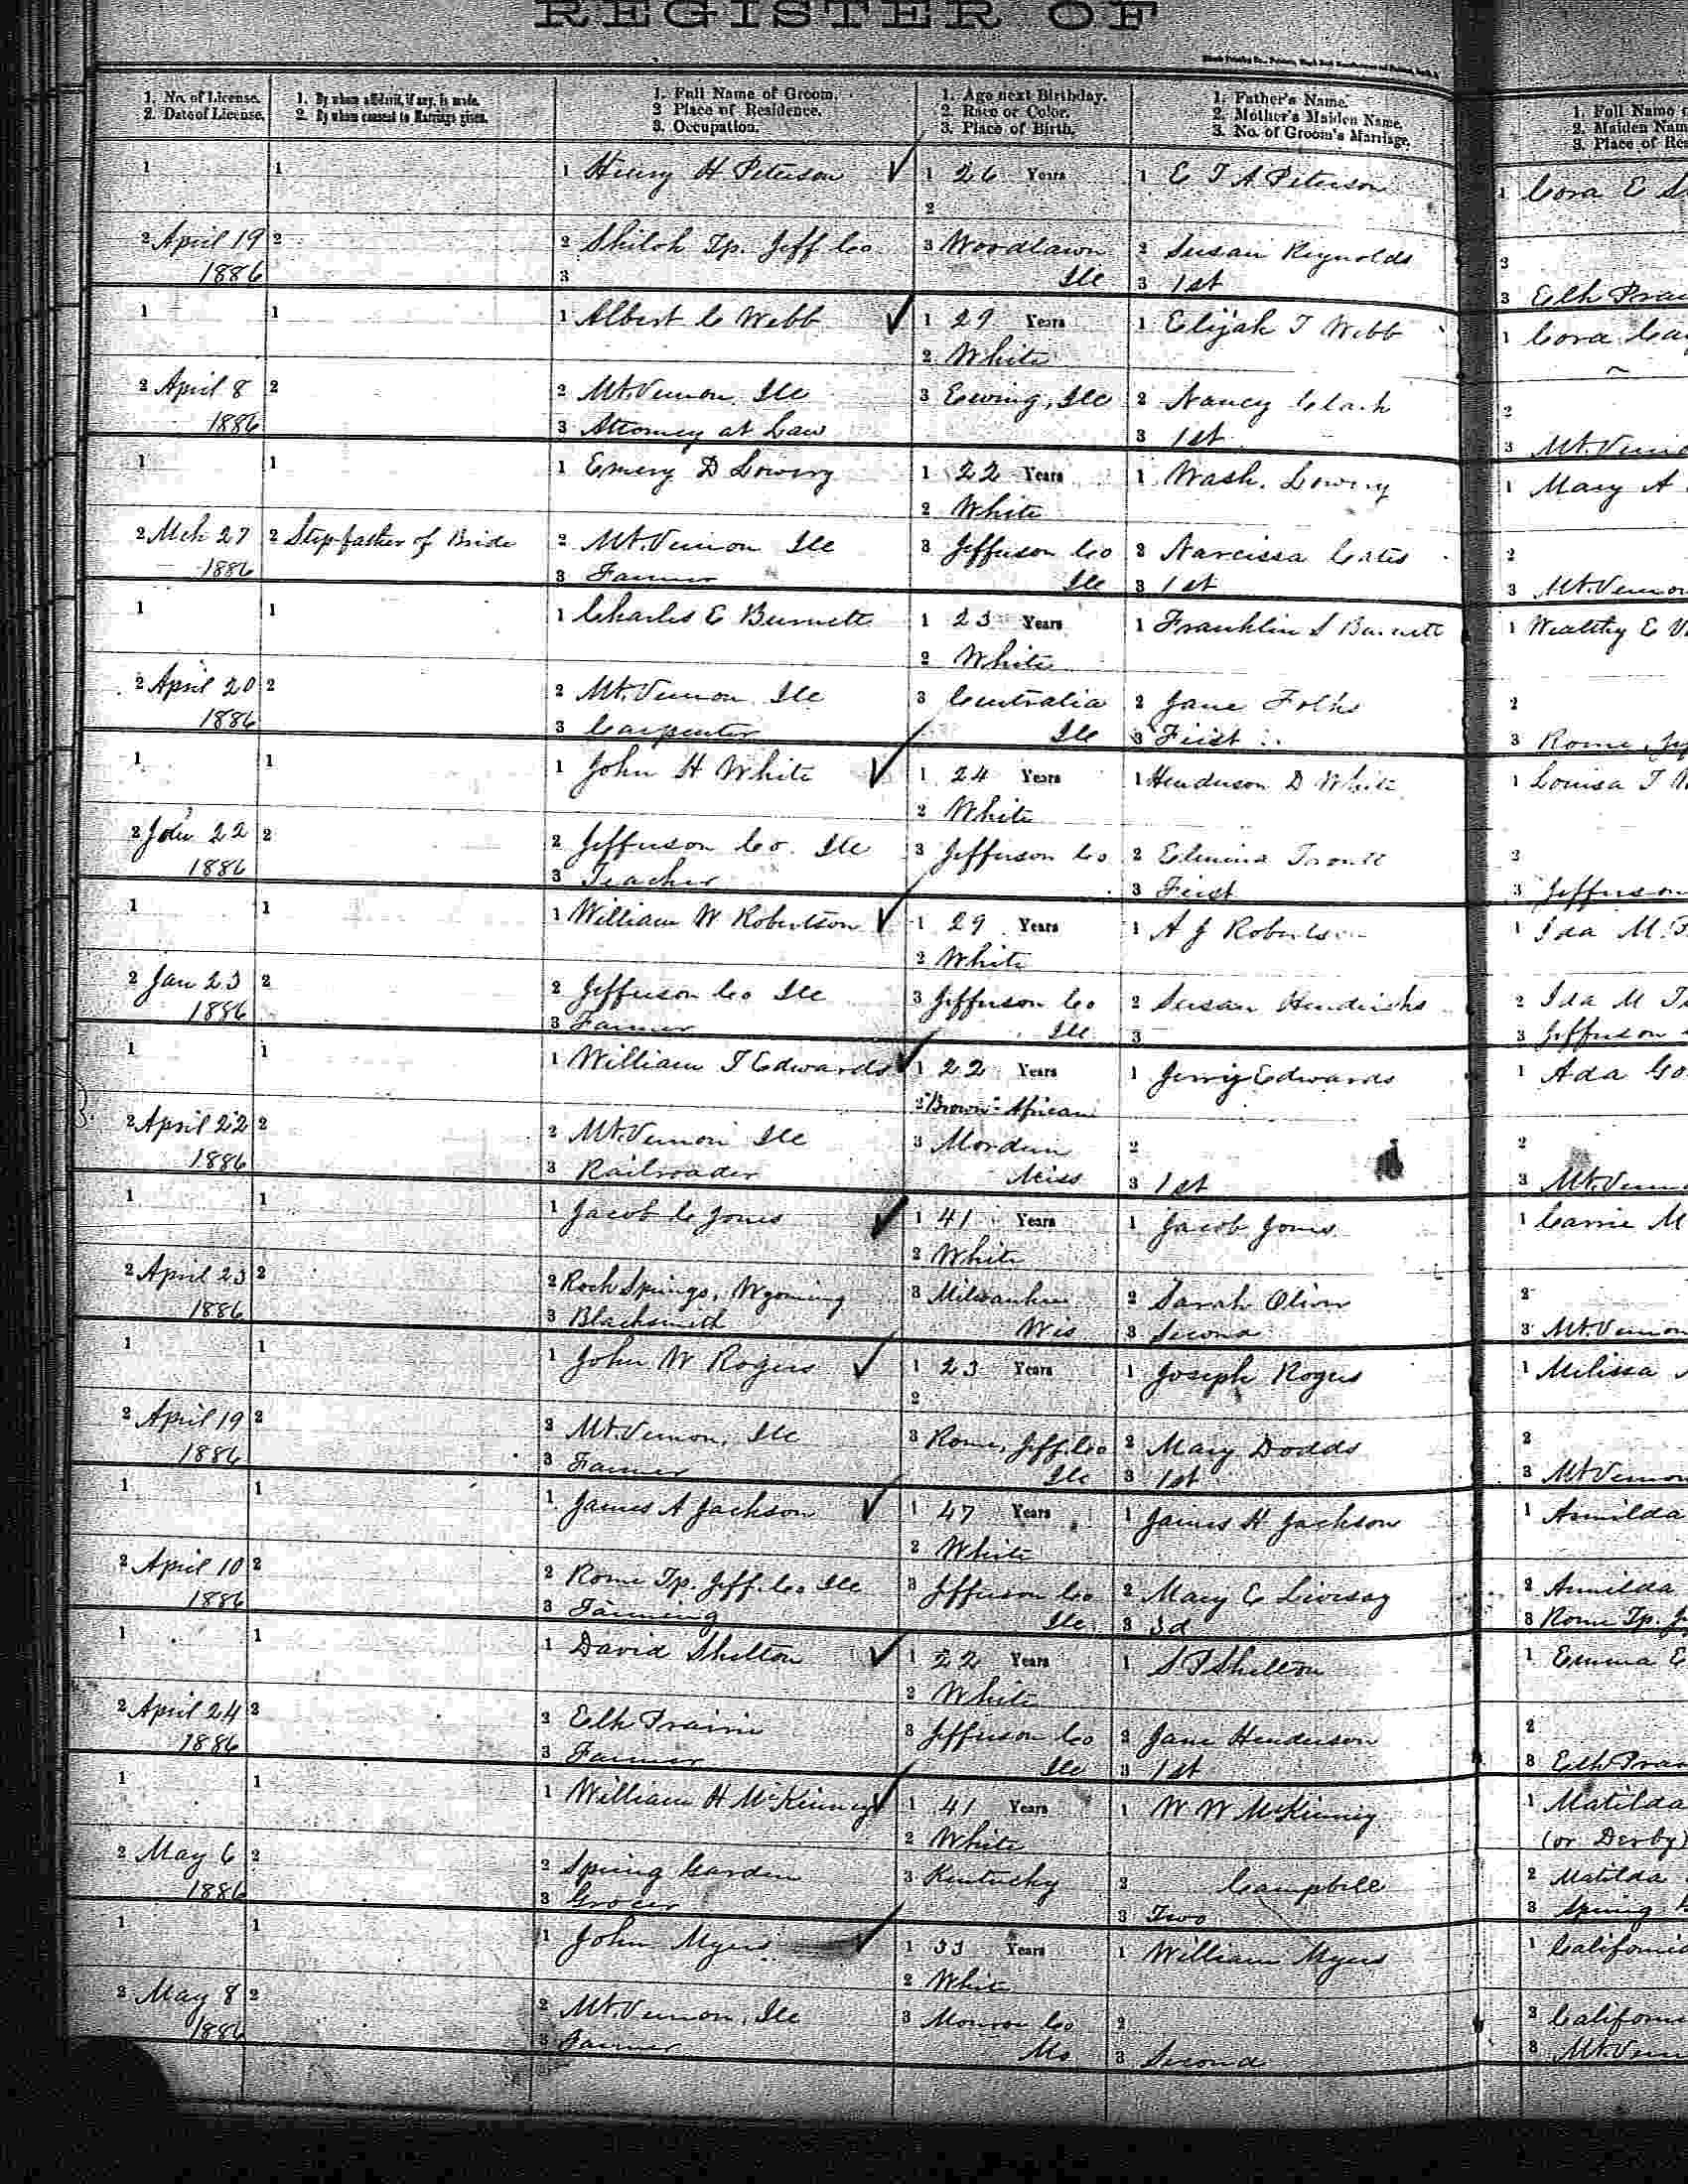 REGISTER OF
1. No. of License.
2. Date of License.
1. By whom affidavit, if any, is made.
2. By whom consent to Marriage given.
1. Full Name of Groom.
2 Place of Residence.
3. Occupation.
1. Age next Birthday.
2. Race or Color.
3. Place of Birth.
1. Father's Name.
2. Mother's Maiden Name.
3. No. of Groom's Marriage.
1. Full Name
2. Maiden Nam
3. Place of Res
1 1 1 Henry H Peterson 1 26 Years 1 E T A Peterson 1 Cora E
2
2 April 19 2 2 Shiloh Tp. Jeff Co 3 Woodlawn 2 Susan Reynolds 2
1886 3 Ill 3 1st 3 Elk Prai
1 1 1 Albert C Webb 1 29 Years 1 Elijah T Webb 1 Cora Ca
2 White
2 April 8 2 2 Mt. Vernon Ill 3 Ewing, Ill 2 Nancy Clark 2
1886 3 Attorney at Law 3 1st 3 Mt. Verno
1 1 1 Emery D Lowery 1 22 Years 1 Wash. Lowery 1 Mary A
2 White
2 Mch 27 2 Step-father of Bride 2 Mt. Vernon Ill 3 Jefferson Co 2 Narcissa Cates 2
1886 3 Farmer Ill 3 1st 3 Mt. Vernon
1 1 1 Charles E Burnett 1 23 Years 1 Franklin S Burnett 1 Wealthy E
2 White
2 April 20 2 2 Mt. Vernon Ill 3 Centralia 2 Jane 2
1886 3 Carpenter Ill 3 First 3 Rome, Je
1 1 1 John H White 1 24 Years 1 Henderson D White 1 Louisa T
2 White
2 22 2 2 Jefferson Co. Ill 3 Jefferson Co 2 2
1886 3 Teacher 3 First 3 Jefferson
1 1 1 William W Robertson 1 29 Years 1 A J Robertson 1 Ida M.
2 White
2 Jan 23 2 2 Jefferson Co Ill 3 Jefferson Co 2 Susan Hendricks 2 Ida M
1886 3 Farmer Ill 3 3 Jefferson
1 1 1 William T Edwards 1 22 Years 1 Jerry Edwards 1 Ada Go
2 "Brown" African
2 April 22 2 2 Mt. Vernon Ill 3 2 2
1886 3 Railroader Miss 3 1st 3 Mt. Vern
1 1 1 Jacob C Jones 1 41 Years 1 Jacob Jones 1 Carrie M
2 White
2 April 23 2 2 Rock Springs, Wyoming 3 Milwaukee 2 Sarah Oliver 2
1886 3 Blacksmith Wis 3 Second 3 Mt. Vernon
1 1 1 John W Rogers 1 23 Years 1 Joseph Rogers 1 Melissa
2
2 April 19 2 2 Mt. Vernon, Ill 3 Rome, Jeff. Co 2 Mary Dodds 2
1886 3 Farmer Ill 3 1st 3 Mt Vernon
1 1 1 James A Jackson 1 47 Years 1 James H Jackson 1 Armilda
2 White
2 April 10 2 2 Rome Tp. Jeff. Co Ill 3 Jefferson Co 2 Mary C Livesay 2 Armilda
1886 3 Farming Ill 3 3d 3 Rome Tp. J
1 1 1 David Shelton 1 22 Years 1 S T Shelton 1 Emma E
2 White
2 April 24 2 2 Elk Prairie 3 Jefferson Co 2 Jane Henderson 2
1886 3 Farmer Ill 3 1st 3 Elk Prai
1 1 1 William H McKinney 1 41 Years 1 W W McKinney 1 Matilda
2 White (or Derby)
2 May 6 2 2 Spring Garden 3 Kentucky 2 Campbell 2 Matilda
1886 3 Grocer 3 Two 3 Spring
1 1 1 John Myers 1 33 Years 1 William Myers 1 California
2 White
2 May 8 2 2 Mt. Vernon, Ill 3 Monroe Co 2 2 Californi
1886 3 Farmer Mo 3 Second 3 Mt. Vern